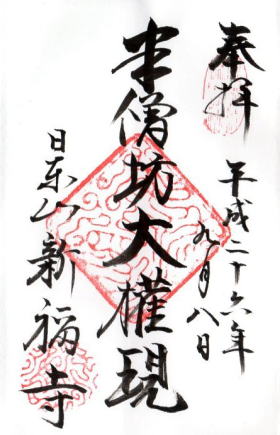 奉拝
平成二十六年
九月八日
半僧坊大權現
日東山新福寺